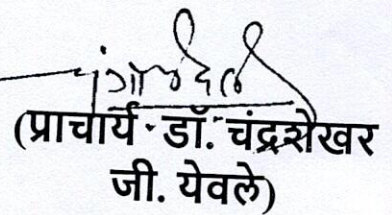 (प्राचार्य - डॉ. चंद्रशेखर
जी. येवले)